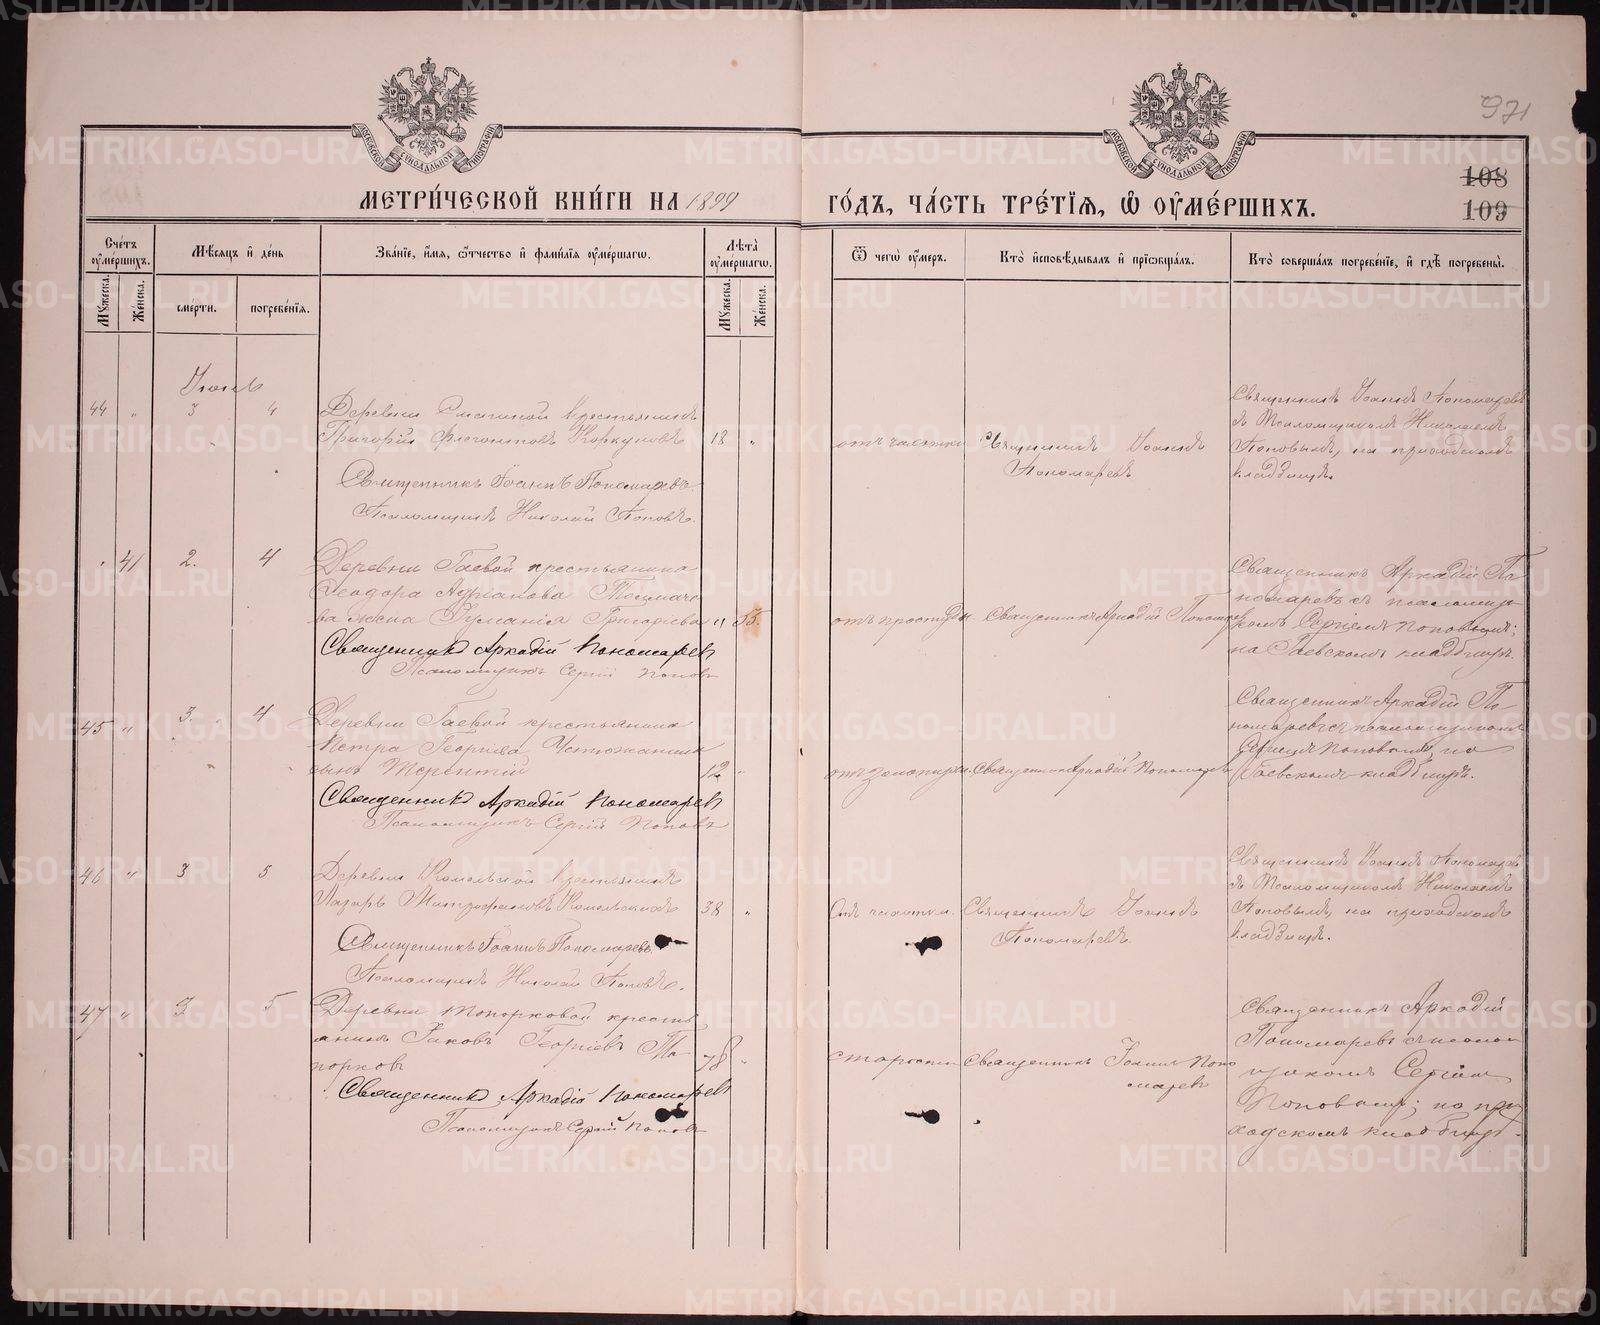 971
108
109
МЕТРИ́ЧЕСКОЙ КНИ́ГИ НА 1899
ГО́ДЪ, ЧА́СТЬ ТРЕ́ТІЯ, Ѡ ОУ҆МЕ́РШИХЪ.
Сче́тъ оу҆ме́ршихъ.
Мꙋ́жеска.
Же́нска.
Мѣ́сяцъ и҆ де́нь
сме́рти.
погребе́нїя.
Зва́нїе, и҆́мя, ѻ҆́тчество и҆ фамі́лїя оу҆ме́ршагѡ.
Лѣ̀та оу҆ме́ршагѡ.
Мꙋ́жеска.
Же́нска.
Ѿ чегѡ̀ оу҆́меръ.
Кто̀ и҆сповѣ́дывалъ и҆ прїѡбща́лъ.
Кто̀ соверша́лъ погребе́нїе, и҆ гдѣ̀ погребены̀.
44 „ 3 4
Деревни крестьянинъ
Григорій Коркуновъ 18 „
Священникъ Іоаннъ Пономаревъ.
Псаломщикъ Николай Поповъ.
отъ чахотки
Священникъ Іоаннъ
Пономаревъ
Священникъ Іоаннъ Пономаревъ
съ Псаломщикомъ Николаемъ
Поповымъ, на приходскомъ
кладбищѣ.
„ 41 2. 4
Деревни Гаевой крестьянина
Ѳеодора Адріанова
жена Григорьева „ 55.
Священникъ Аркадій Пономаревъ
Псаломщикъ Сергій Поповъ
отъ простуды
Священникъ Аркадій Пономарев
Священникъ Аркадій По-
номаревъ съ псаломщи-
комъ Сергіемъ Поповымъ;
на Гаевскомъ кладбищѣ.
45 „ 3. 4
Деревни Гаевой крестьянина
Петра Георгіева Устюжанина
сынъ Терентій 12 „
Священникъ Аркадій Пономаревъ
Псаломщикъ Сергій Поповъ
Священникъ Аркадій Пономаревъ
Священникъ Аркадій По-
номаревъ съ псаломщикомъ
Сергіемъ Поповымъ, на
Гаевскомъ кладбищѣ.
46 „ 3 5
Деревни Комельской крестьянинъ
Лазарь Митрофановъ Комельскихъ 38 „
Священникъ Іоаннъ Пономаревъ.
Псаломщикъ Николай Поповъ.
Отъ чахотки.
Священникъ Іоаннъ
Пономаревъ.
Священникъ Іоаннъ Пономаревъ
съ Псаломщикомъ Николаемъ
Поповымъ, на приходскомъ
кладбищѣ.
47 „ 3 5
Деревни Топорковой кресть-
янинъ Іаковъ Георгіевъ То-
порковъ 78 „
Священникъ Аркадій Пономаревъ
Псаломщикъ Сергій Поповъ
старости
Священникъ Іоаннъ Поно
маревъ
Священникъ Аркадій
Пономаревъ съ псалом
щикомъ Сергіемъ
Поповымъ; на при
ходскомъ кладбищѣ.